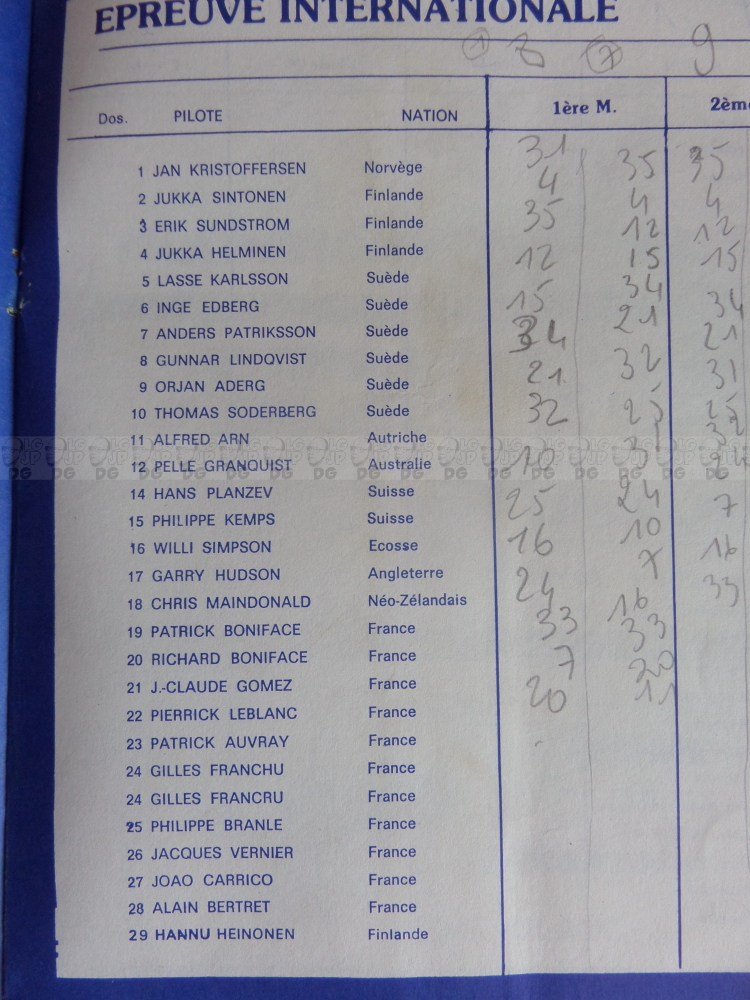 EPREUVE INTERNATIONALE
8 7 9
Dos. PILOTE NATION 1ère M. 2èm
1 JAN KRISTOFFERSEN Norvège 31 35 35
2 JUKKA SINTONEN Finlande 4 4 4
3 ERIK SUNDSTROM Finlande 35 12 12
4 JUKKA HELMINEN Finlande 12 15 15
5 LASSE KARLSSON Suède 15 34
6 INGE EDBERG Suède 34 21 34
7 ANDERS PATRIKSSON Suède 21 32 21
8 GUNNAR LINDQVIST Suède 31
9 ORJAN ADERG Suède 32 25 25
10 THOMAS SODERBERG Suède
11 ALFRED ARN Autriche 10
12 PELLE GRANQUIST Australie 25 24
14 HANS PLANZEV Suisse 7
15 PHILIPPE KEMPS Suisse 16 10 16
16 WILLI SIMPSON Ecosse 7
17 GARRY HUDSON Angleterre 24 16 33
18 CHRIS MAINDONALD Néo-Zélandais 33 33
19 PATRICK BONIFACE France 7 20
20 RICHARD BONIFACE France 20 11
21 J.-CLAUDE GOMEZ France
22 PIERRICK LEBLANC France
23 PATRICK AUVRAY France
24 GILLES FRANCHU France
24 GILLES FRANCRU France
25 PHILIPPE BRANLE France
26 JACQUES VERNIER France
27 JOAO CARRICO France
28 ALAIN BERTRET France
29 HANNU HEINONEN Finlande